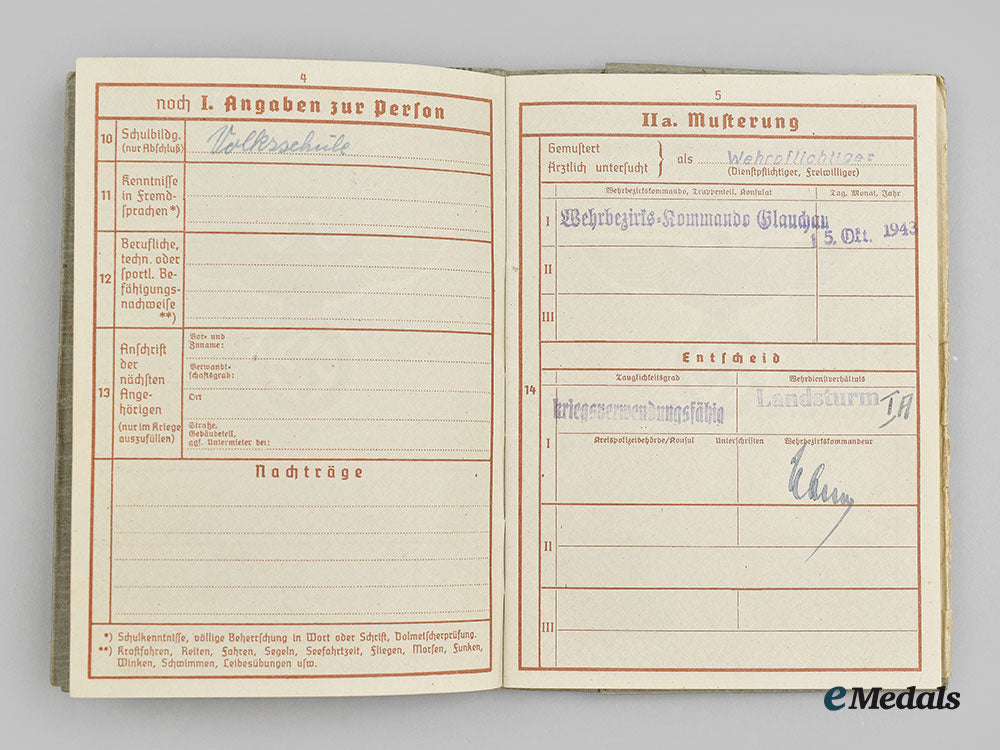 4
noch I. Angaben zur Person
10
Schulbildg.
(nur Abschluß)
Volksschule
11
Kenntnisse
in Fremd-
sprachen*)
12
Berufliche,
techn. oder
sportl. Be-
fähigungs-
nachweise
**)
13
Anschrift
der
nächsten
Ange-
hörigen
(nur im Kriege
auszufüllen)
Vor- und
Zuname:
Verwandt-
schaftsgrad:
Ort
Straße,
Gebäudeteil,
ggf. Untermieter bei:
Nachträge
*) Schulkenntnisse, völlige Beherrschung in Wort oder Schrift, Dolmetscherprüfung.
**) Kraftfahren, Reiten, Fahren, Segeln, Seefahrtzeit, Fliegen, Morsen, Funken,
Winken, Schwimmen, Leibesübungen usw.
5
IIa. Musterung
Gemustert
Ärztlich untersucht } als Wehrpflichtiger
(Dienstpflichtiger, Freiwilliger)
Wehrbezirkskommando, Truppenteil, Konsulat
Tag, Monat, Jahr
I
Wehrbezirks-Kommando Glauchau
5. Okt. 1943
II
III
Entscheid
14
Tauglichkeitsgrad
Wehrdienstverhältnis
kriegsverwendungsfähig
Landsturm I A
I
Kreispolizeibehörde/Konsul Unterschriften Wehrbezirkskommandeur
II
III
eMedals